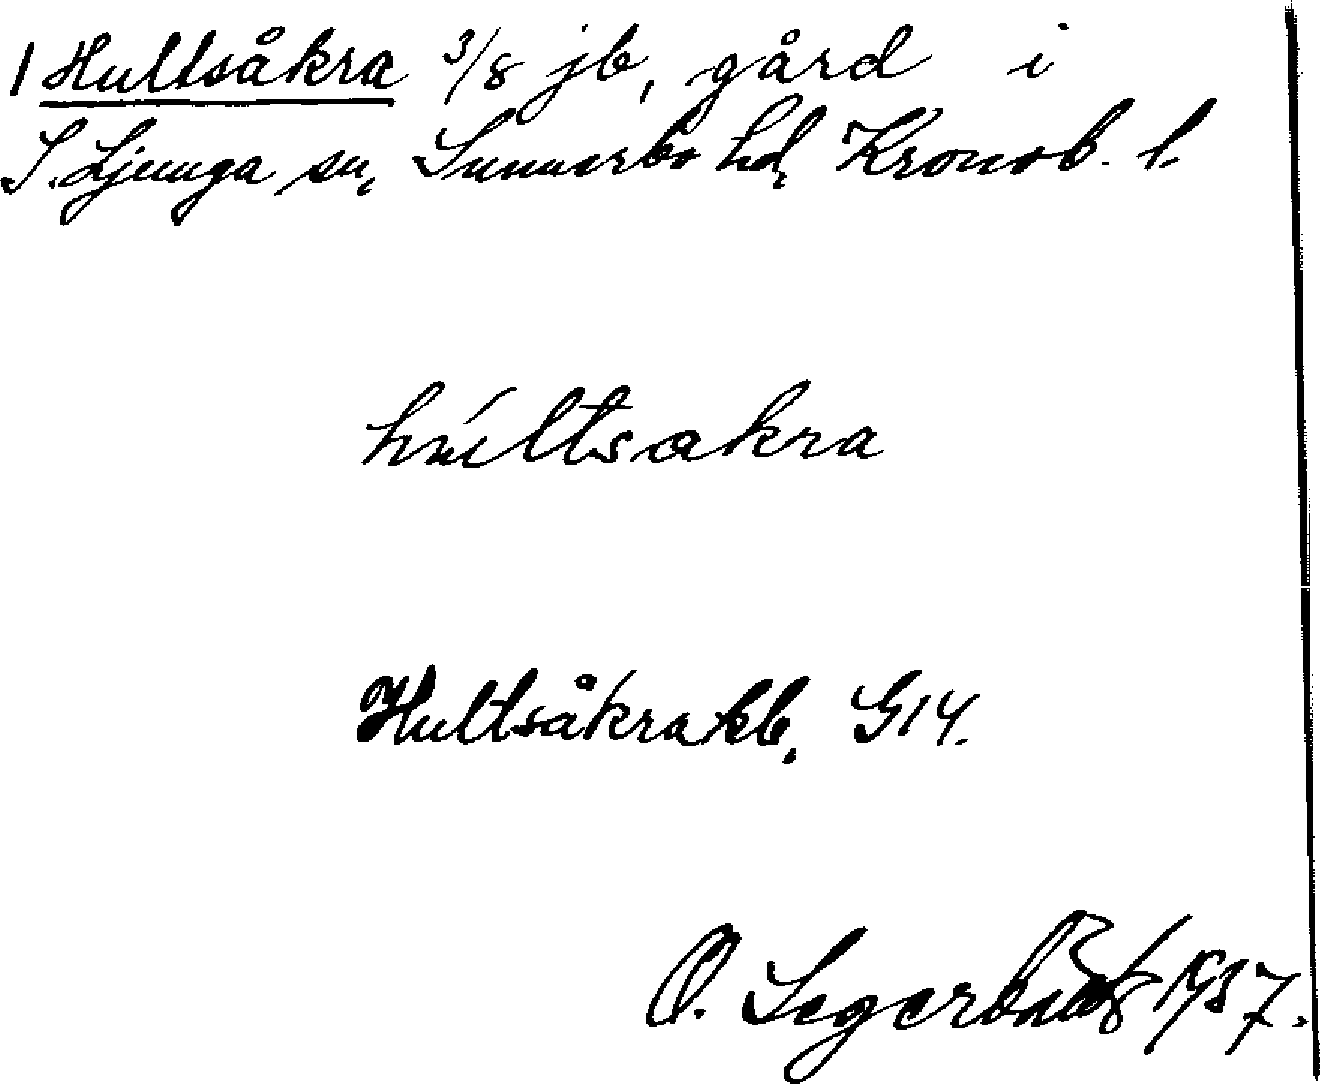 1 Hultsåkra 3/8 jb, gård i
S. Ljunga sn, Sunnerbo hd, Kronob. l.
húltsakra
Hultsåkra kb. G14.
O. Segerb 1937.